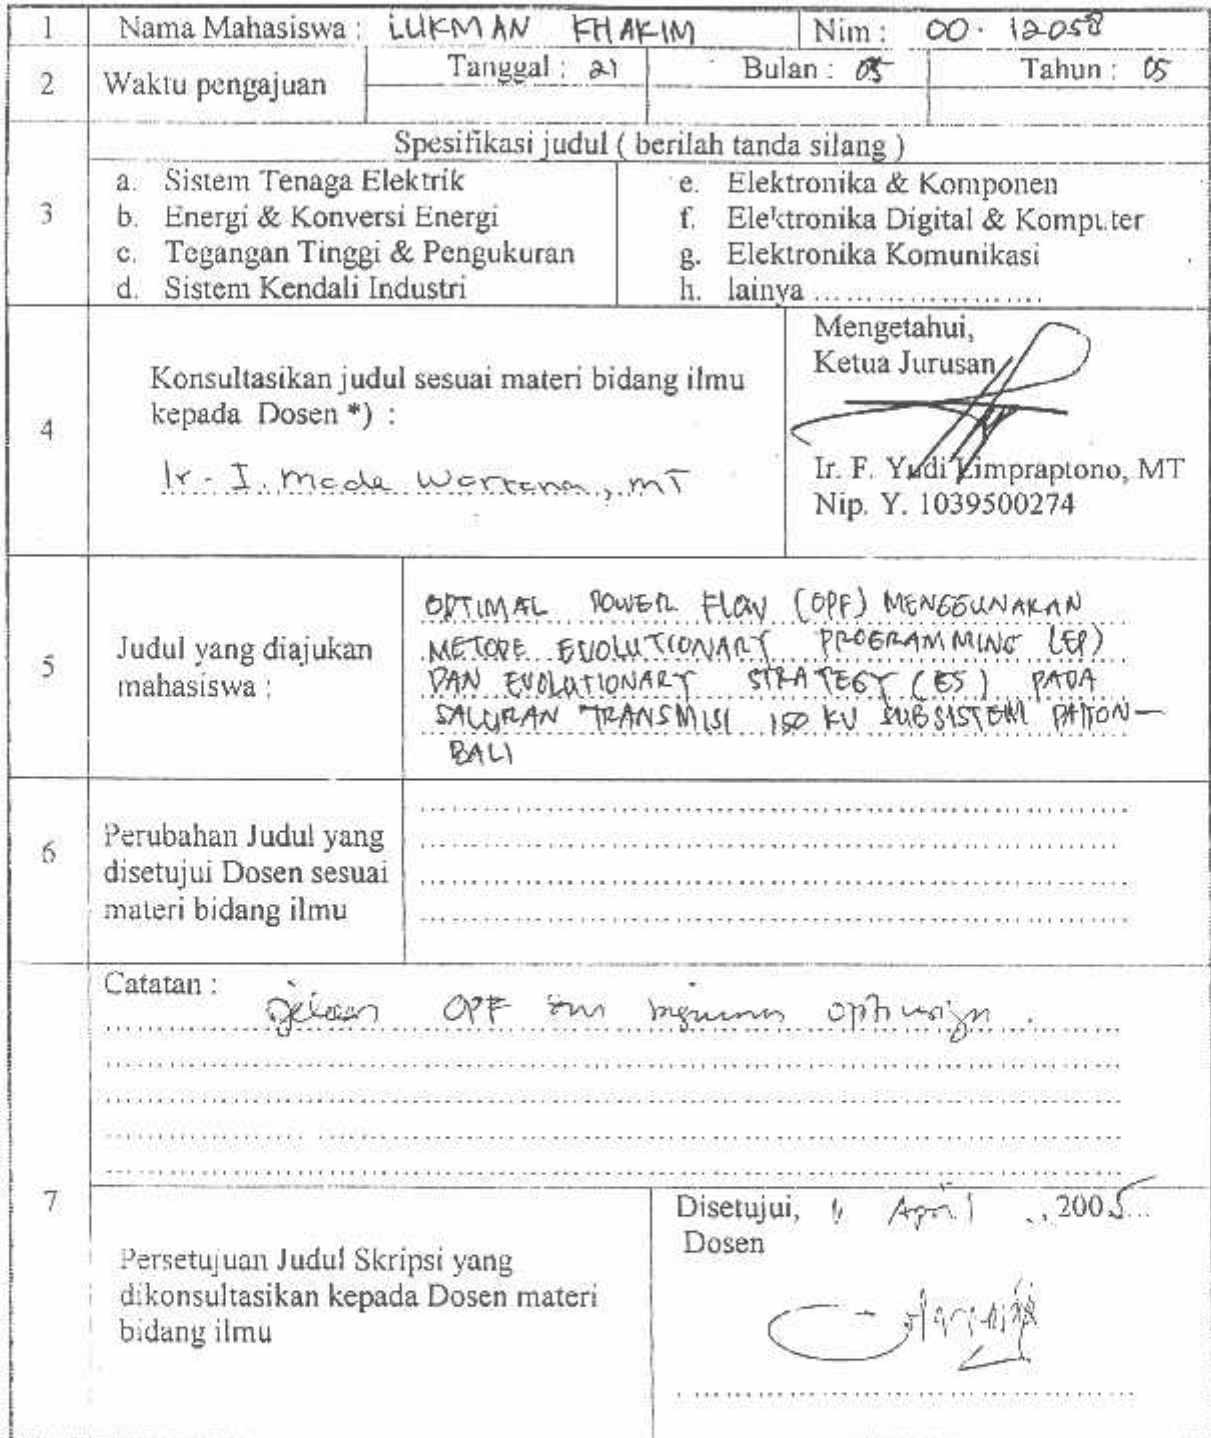 1 Nama Mahasiswa : LUKMAN KHAKIM Nim : 00. 12058
2 Waktu pengajuan Tanggal : 21 Bulan : 03 Tahun : 05
3 Spesifikasi judul ( berilah tanda silang )
a. Sistem Tenaga Elektrik
b. Energi & Konversi Energi
c. Tegangan Tinggi & Pengukuran
d. Sistem Kendali Industri
e. Elektronika & Komponen
f. Elektronika Digital & Komputer
g. Elektronika Komunikasi
h. lainya ........................
4 Konsultasikan judul sesuai materi bidang ilmu
kepada Dosen *) :
Ir. I. Made Wartana, MT
Mengetahui,
Ketua Jurusan
Ir. F. Yudi Limpraptono, MT
Nip. Y. 1039500274
5 Judul yang diajukan
mahasiswa :
OPTIMAL POWER FLOW (OPF) MENGGUNAKAN
METODE EVOLUTIONARY PROGRAMMING (EP)
DAN EVOLUTIONARY STRATEGY (ES) PADA
SALURAN TRANSMISI 150 KV SUBSISTEM PAITON-
BALI
6 Perubahan Judul yang
disetujui Dosen sesuai
materi bidang ilmu
7 Catatan :
OPF
Persetujuan Judul Skripsi yang
dikonsultasikan kepada Dosen materi
bidang ilmu
Disetujui, April 2005
Dosen